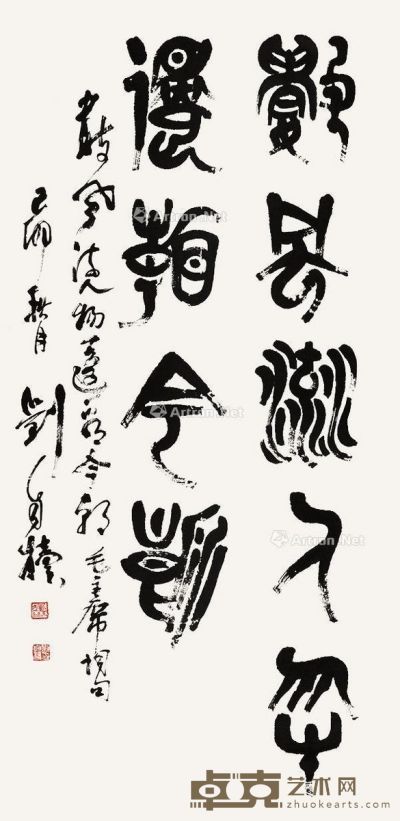 數風流人物
還看今朝
數風流人物還看今朝 毛主席詞句
己卯秋月 劉自櫝
Artron.Net
Artron.Net
Artron.Net
Artron.Net
Artron.Net
Artron.Net
卓克艺术网
zhuokearts.com